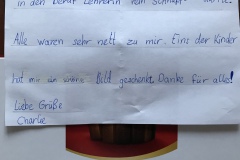 in den Beruf Lehrerin rein schnuppern
Alle waren sehr nett zu mir. Eins der Kinder
hat mir ein Bild geschenkt. Danke für alles!
Liebe Grüße
Charlie